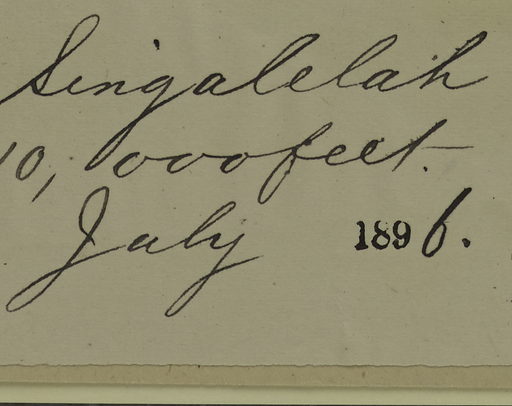 Singalelah
10,000 feet.
July 1896.